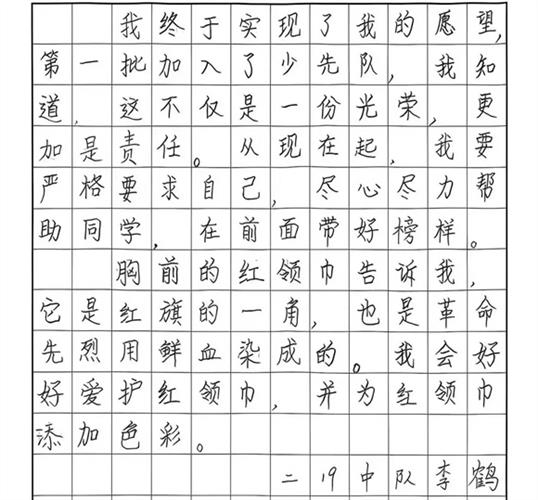 我终于实现了我的愿望,
第一批加入了少先队,我知
道,这不仅是一份光荣,更
加是责任。从现在起,我要
严格要求自己,尽心尽力帮
助同学,在前面带好榜样。
胸前的红领巾告诉我,
它是红旗的一角,也是革命
先烈用鲜血染成的。我会好
好爱护红领巾,并为红领巾
添加色彩。
二19中队李鹤